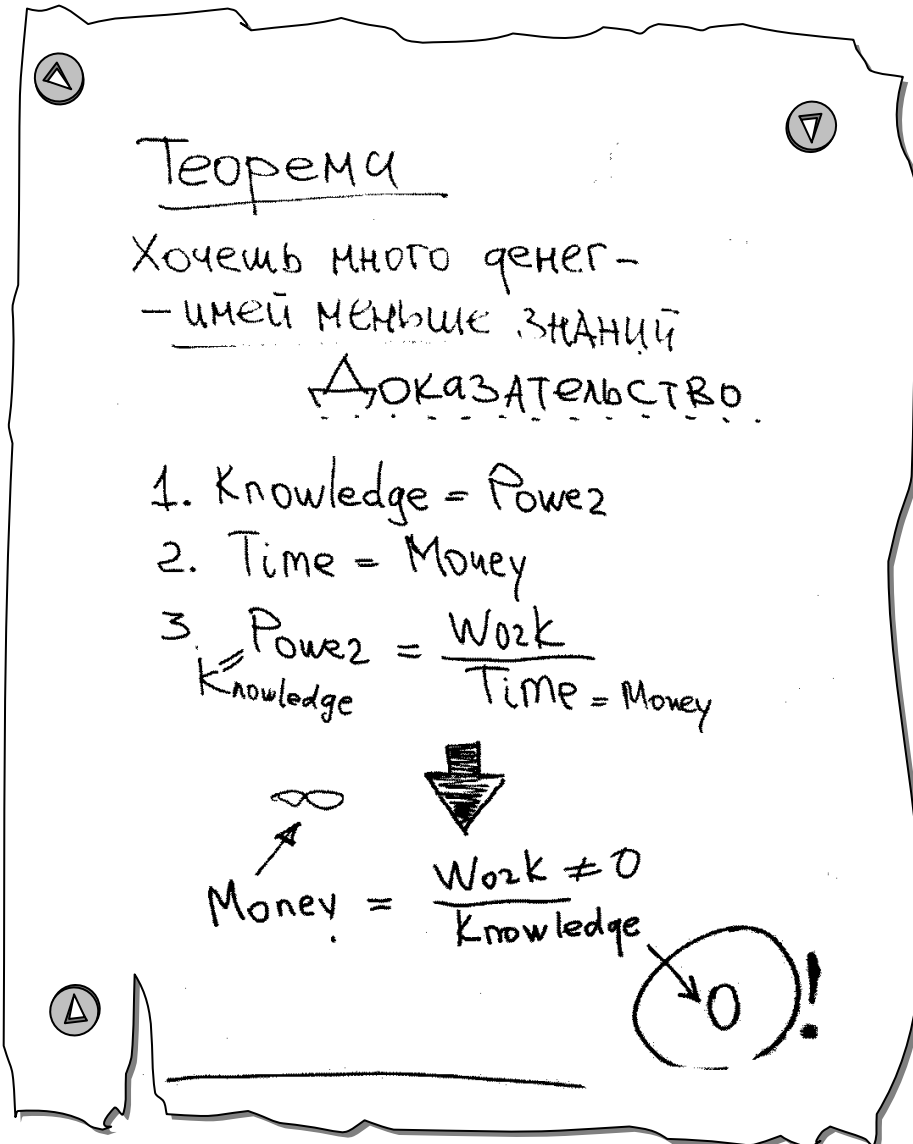 Теорема
Хочешь много денег -
- имей меньше знаний
Доказательство
1. Knowledge = Power
2. Time = Money
3. Power = Work
Knowledge
Time = Money
∞
Money = Work ≠ 0
Knowledge
0!